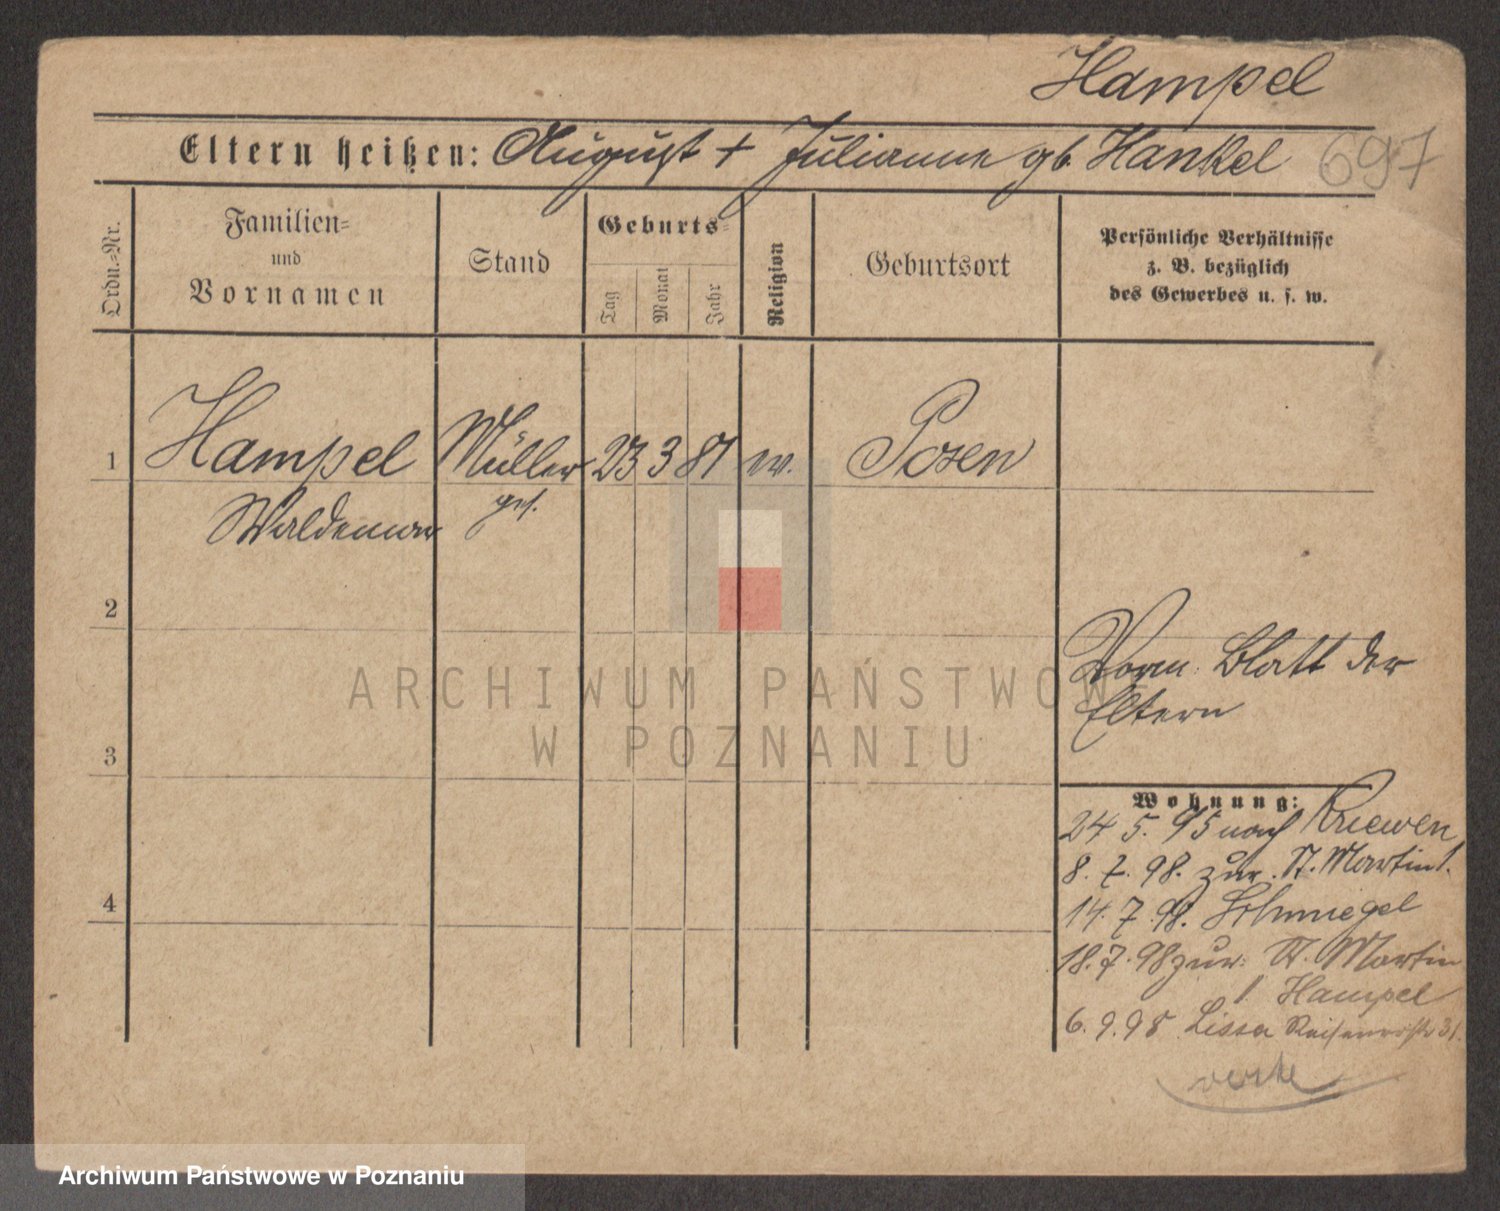 Hampel
Eltern heißen: August + Julianne gb. Hankel 697
Ordn.=Nr.
Familien=
und
Vornamen
Stand
Geburts=
Tag
Monat
Jahr
Religion
Geburtsort
Persönliche Verhältnisse
z. B. bezüglich
des Gewerbes u. s. w.
1 Hampel Müller 23 3 81 w. Posen
Waldemar
2
Blatt der
Eltern
ARCHIWUM PAŃSTWOW
W POZNANIU
3
Wohnung:
24 5. 95 nach Kriewen
8. 7. 98. zur. St. Martin 1.
14. 7. 98. Schmiegel
18. 7. 98 zur. St. Martin
4
1 Hampel
6. 9. 98 Lissa 31.
Archiwum Państwowe w Poznaniu